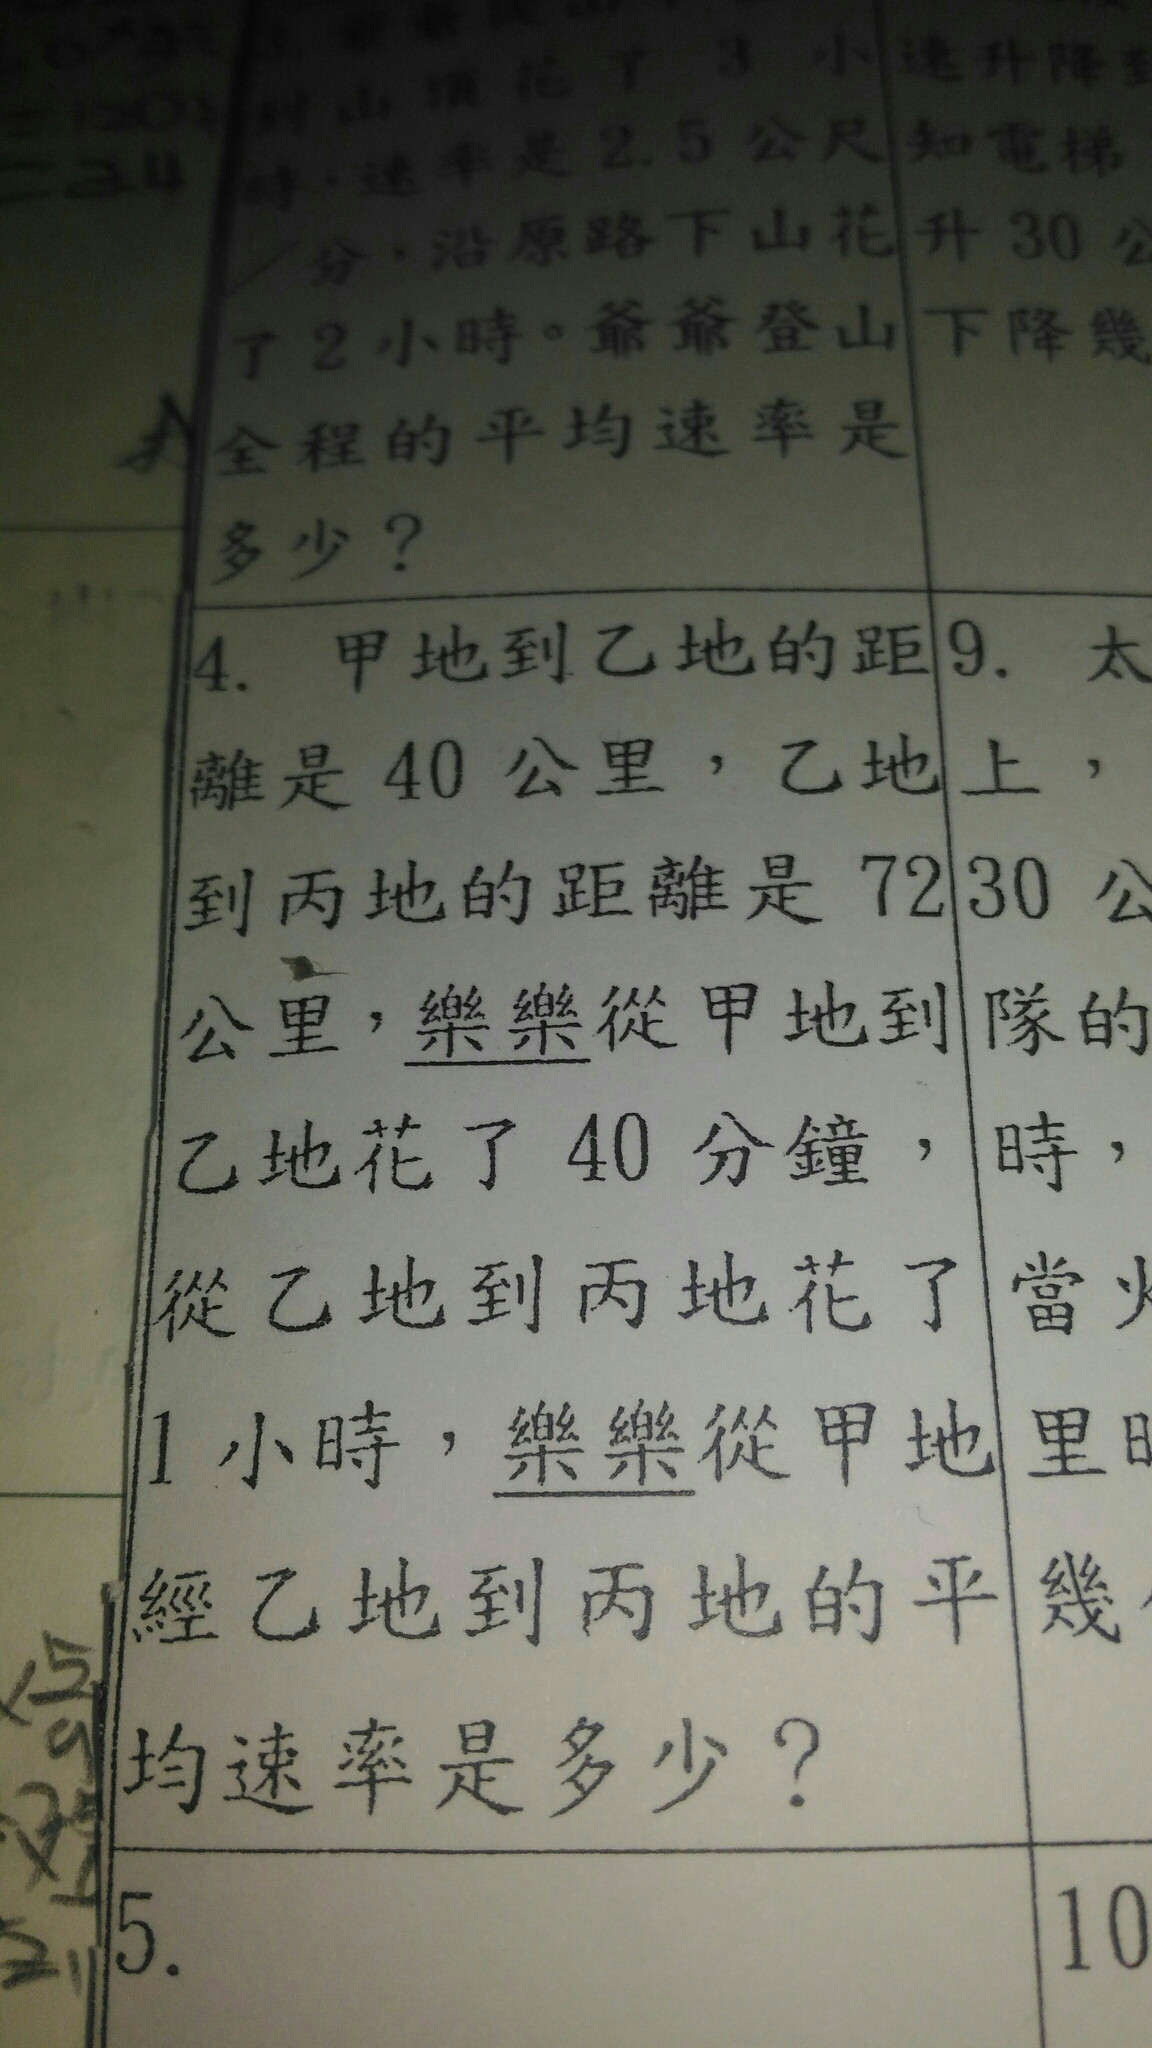 山頂花了 3 小
時，速率是 2.5 公尺
／分，沿原路下山花
了 2 小時。爺爺登山
全程的平均速率是
多少？
4. 甲地到乙地的距
離是 40 公里，乙地
到丙地的距離是 72
公里，樂樂從甲地到
乙地花了 40 分鐘，
從乙地到丙地花了
1 小時，樂樂從甲地
經乙地到丙地的平
均速率是多少？
5.
速升降
知電梯
升 30 公
下降幾
9. 太
上，
30 公
隊的
時，
當火
里時
幾
10